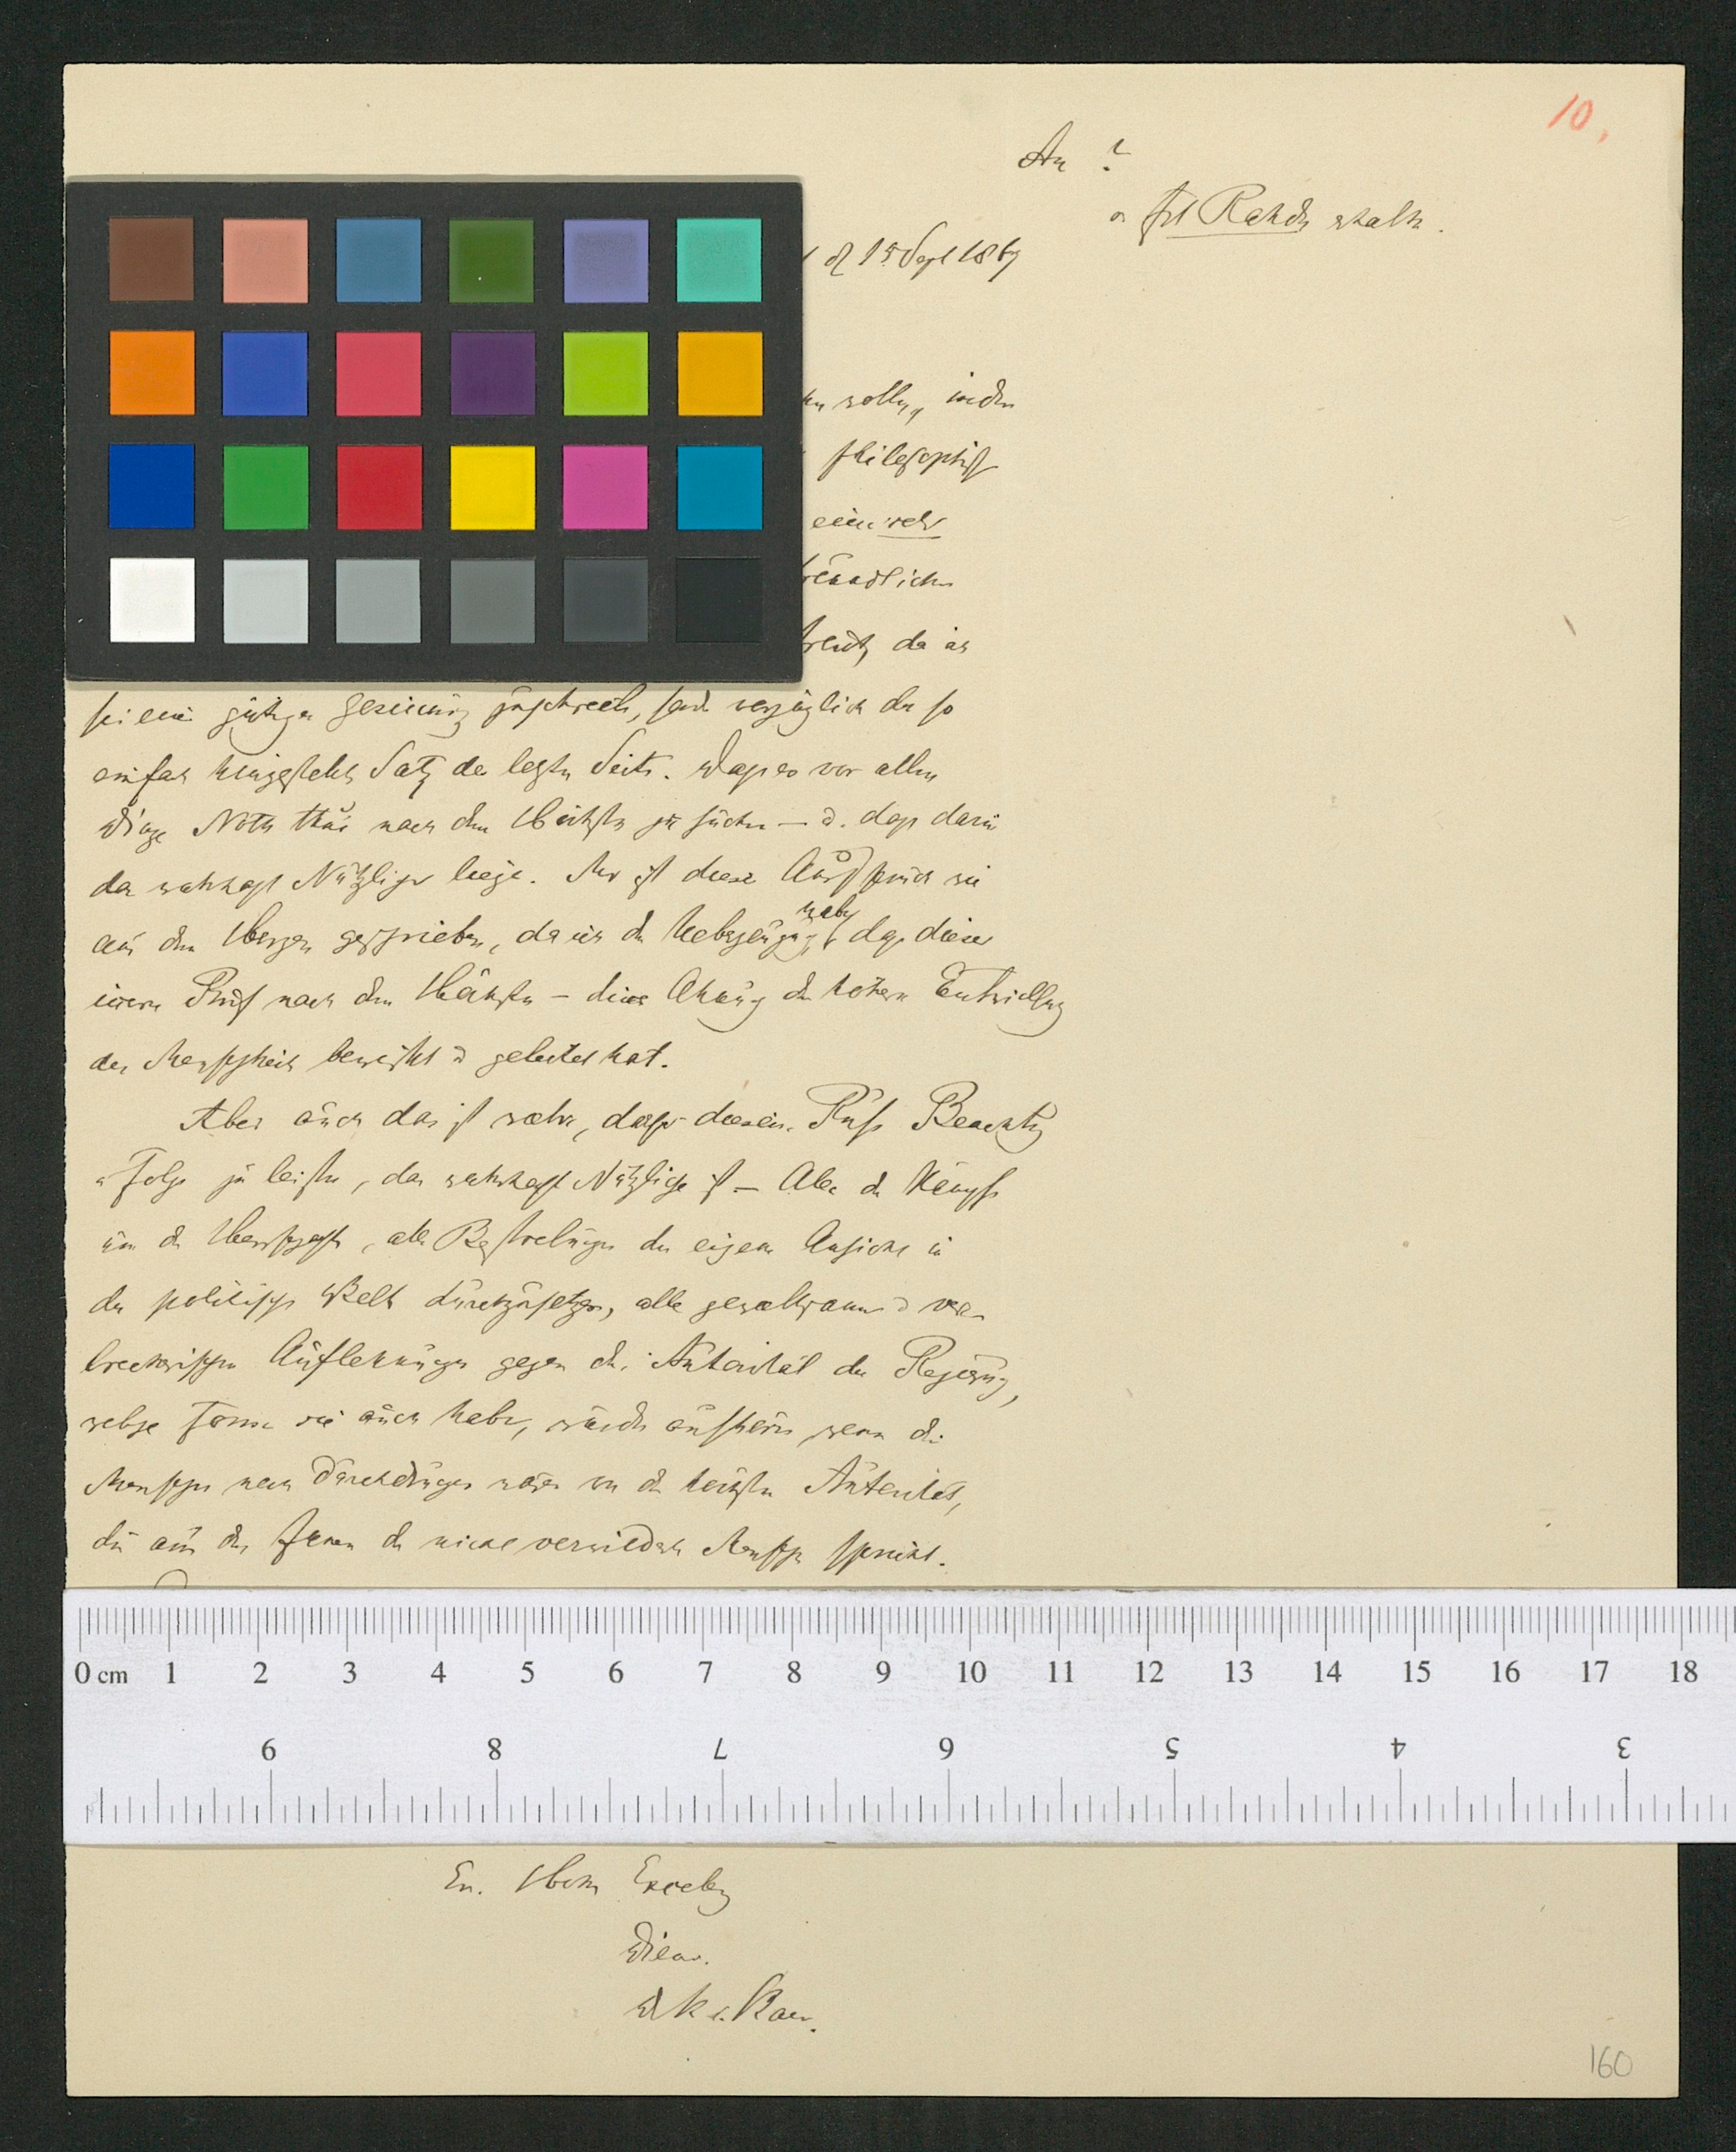 10.
An ?
Frl Rahden erhalten.
d 15 Sept 1869
wollen, indem
philosophisch
eine sehr
da ich
gütigen Gesinnung zuschreibe, vorzüglich der so
einfach hingestellte Satz der letzten Seite. Daß es vor allen
Dinge Noth thue nach dem Höchsten zu suchen — u. daß darin
das wahrhaft Nützliche liege. Mir ist dieser Ausspruch wie
aus dem Herzen geschrieben, da ich die Ueberzeugung habe, daß dieser
innere Ruf nach dem Höchsten – diese Ahnung die höhere Entwicklung
der Menschheit bewirkt u geleitet hat.
Aber auch das ist wahr, daß diesem Rufe Beachtung
u Folge zu leisten, das wahrhaft Nützliche ist — Alle die Kämpfe
um die Herrschaft, alle Bestrebungen die eigene Ansicht in
der politischen Welt durchzusetzen, alle gewaltsamen u ver-
brecherischen Auflehnungen gegen die Autorität der Regierung,
welche Form sie auch haben, würden aufhören wenn die
Menschen mehr durchdrungen wären von der höchsten Autorität,
die aus dem Innern der nicht verwilderten Menschen spricht.
0 cm 1 2 3 4 5 6 7 8 9 10 11 12 13 14 15 16 17 18
9 8 7 6 5 4 3
Ew. Hohen Excellenz
Diener
D K. v. Baer.
160